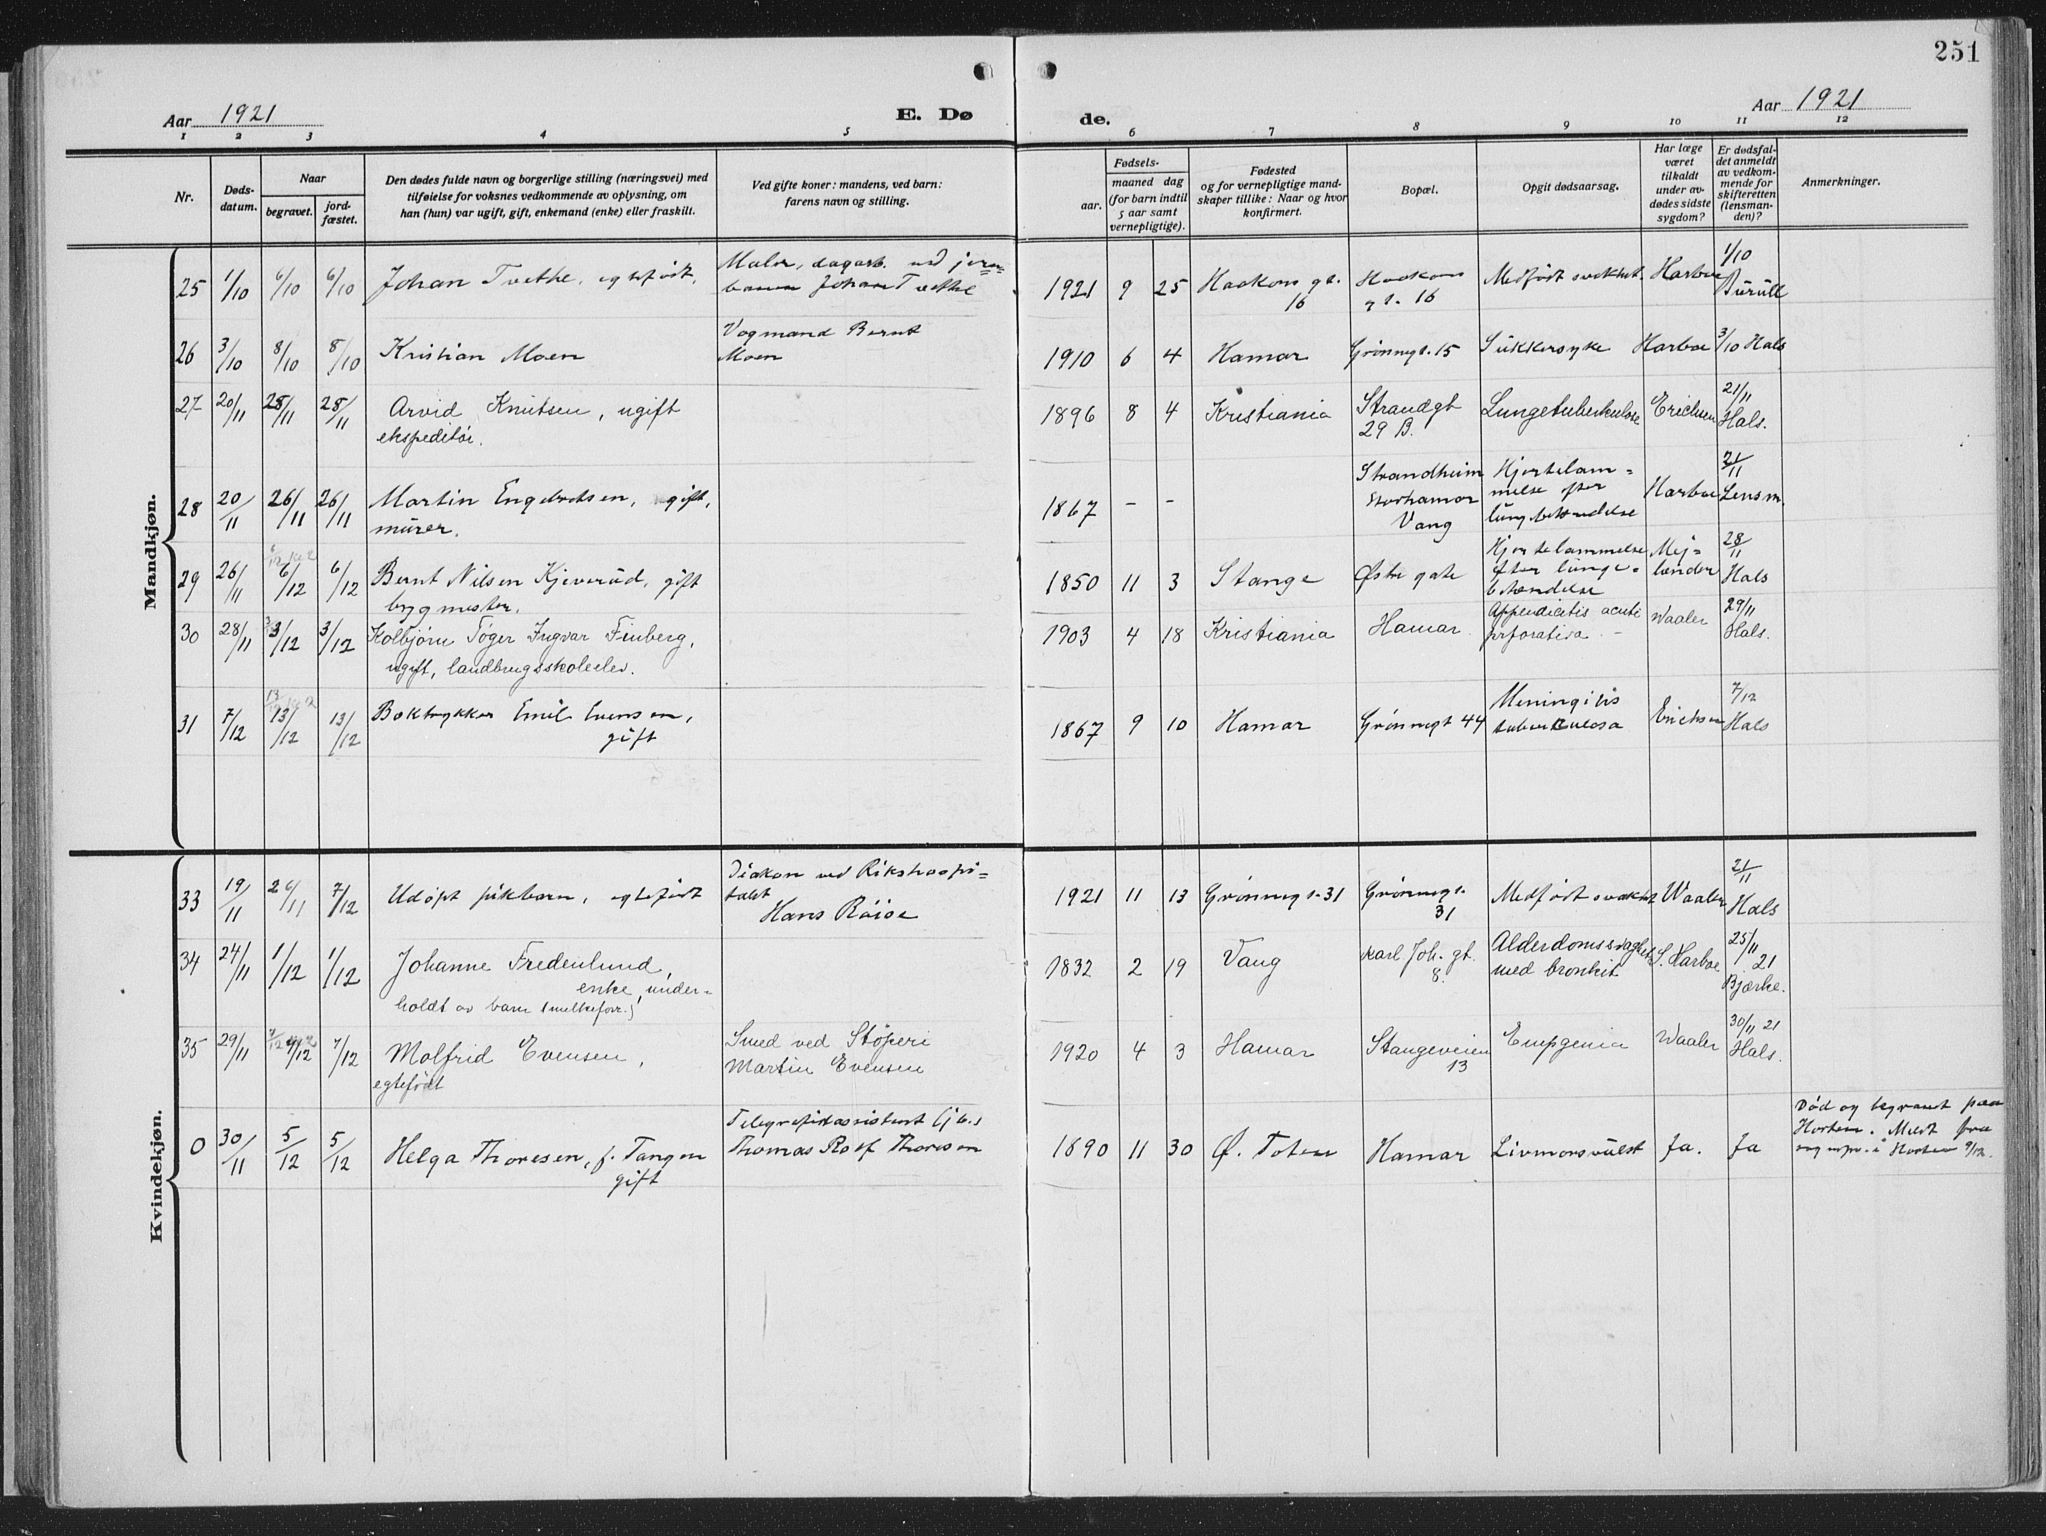 251
Aar 1921
E. Dø
de.
Aar 1921
1 2 3 4 5 6 7 8 9 10 11 12
Nr.
Døds-
datum.
Naar
begravet.
jord-
fæstet.
Den dødes fulde navn og borgerlige stilling (næringsvei) med
tilføielse for voksnes vedkommende av oplysning, om
han (hun) var ugift, gift, enkemand (enke) eller fraskilt.
Ved gifte koner: mandens, ved barn:
farens navn og stilling.
Fødsels-
aar.
maaned dag
(for barn indtil
5 aar samt
vernepligtige).
Fødested
og for vernepligtige mand-
skaper tillike: Naar og hvor
konfirmert.
Bopæl.
Opgit dødsaarsag.
Har læge
været
tilkaldt
under av-
dødes sidste
sygdom?
Er dødsfal-
det anmeldt
av vedkom-
mende for
skifteretten
(lensman-
den)?
Anmerkninger.
Mandkjøn.
25 1/10 6/10 6/10 Johan Tvethe, egtefødt,
Maler, dagarb. ved jern-
banen Johan Tvethe
1921 9 25 Haakons gt.
16
Haakons
gt. 16
Medfødt svakhet. Harboe
1/10
Burull
26 3/10 8/10 8/10 Kristian Moen
Vogmand Bernt
Moen
1910 6 4 Hamar Grønnegt. 15 Sukkersyke Harboe 3/10 Hals
27 20/11 25/11 25/11 Arvid Knutsen, ugift
ekspeditør.
1896 8 4 Kristiania Strandgt
29 B.
Lungetuberkulose Erichsen
21/11
Hals.
28 20/11 26/11 26/11 Martin Engebretsen, gift,
murer.
1867 - -
Strandheim
Storhamar
Vang
Hjertelam-
melse efter
lungebetændelse
Harboe
21/11
Lensm.
29 26/11 6/12 6/12 Bernt Nilsen Kjeverud, gift
bygmester.
1850 11 3 Stange Østre gate
Hjertelammelse
efter lunge-
betændelse
Mej-
lænder
28/11
Hals
30 28/11 3/12 3/12 Kolbjørn Tøger Ingvar Finberg,
ugift, landbrugsskoleelev.
1903 4 18 Kristiania Hamar.
Appendicitis acuta
prforativa.
Waaler
29/11
Hals.
31 7/12 13/12 13/12 Boktrykker Emil Evensen,
gift
1867 9 10 Hamar Grønnegt 44
Meningitis
tuberculosa
Erichsen
7/12
Hals
Kvindekjøn.
33 19/11 26/11 7/12 Udøpt pikebarn, egtefødt
Diakon ved Rikshospi-
talet
Hans Røise
1921 11 13 Grønnegt. 31 Grønnegt.
31
Medfødt svakhet Waaler
21/11
Hals
34 24/11 1/12 1/12 Johanne Fredenlund,
enke, under-
holdt av barn (melkeforr.)
1832 2 19 Vang Karl Joh. gt.
8.
Alderdomssvaghet
med bronkit.
S. Harboe
25/11 21
Bjerke.
35 29/11 7/12 7/12 Molfrid Evensen,
egtefødt
Smed ved Støperi
Martin Evensen
1920 4 3 Hamar Stangeveien
13
Waaler
30/11 21
Hals.
0 30/11 5/12 5/12 Helga Thoresen, f. Tangen
gift
Thomas Rolf Thoresen
1890 11 30 Ø. Toten Hamar Livmorsvulst Ja. Ja
Død og begravet paa
Horten. Meldt fra
i Horten 9/12.